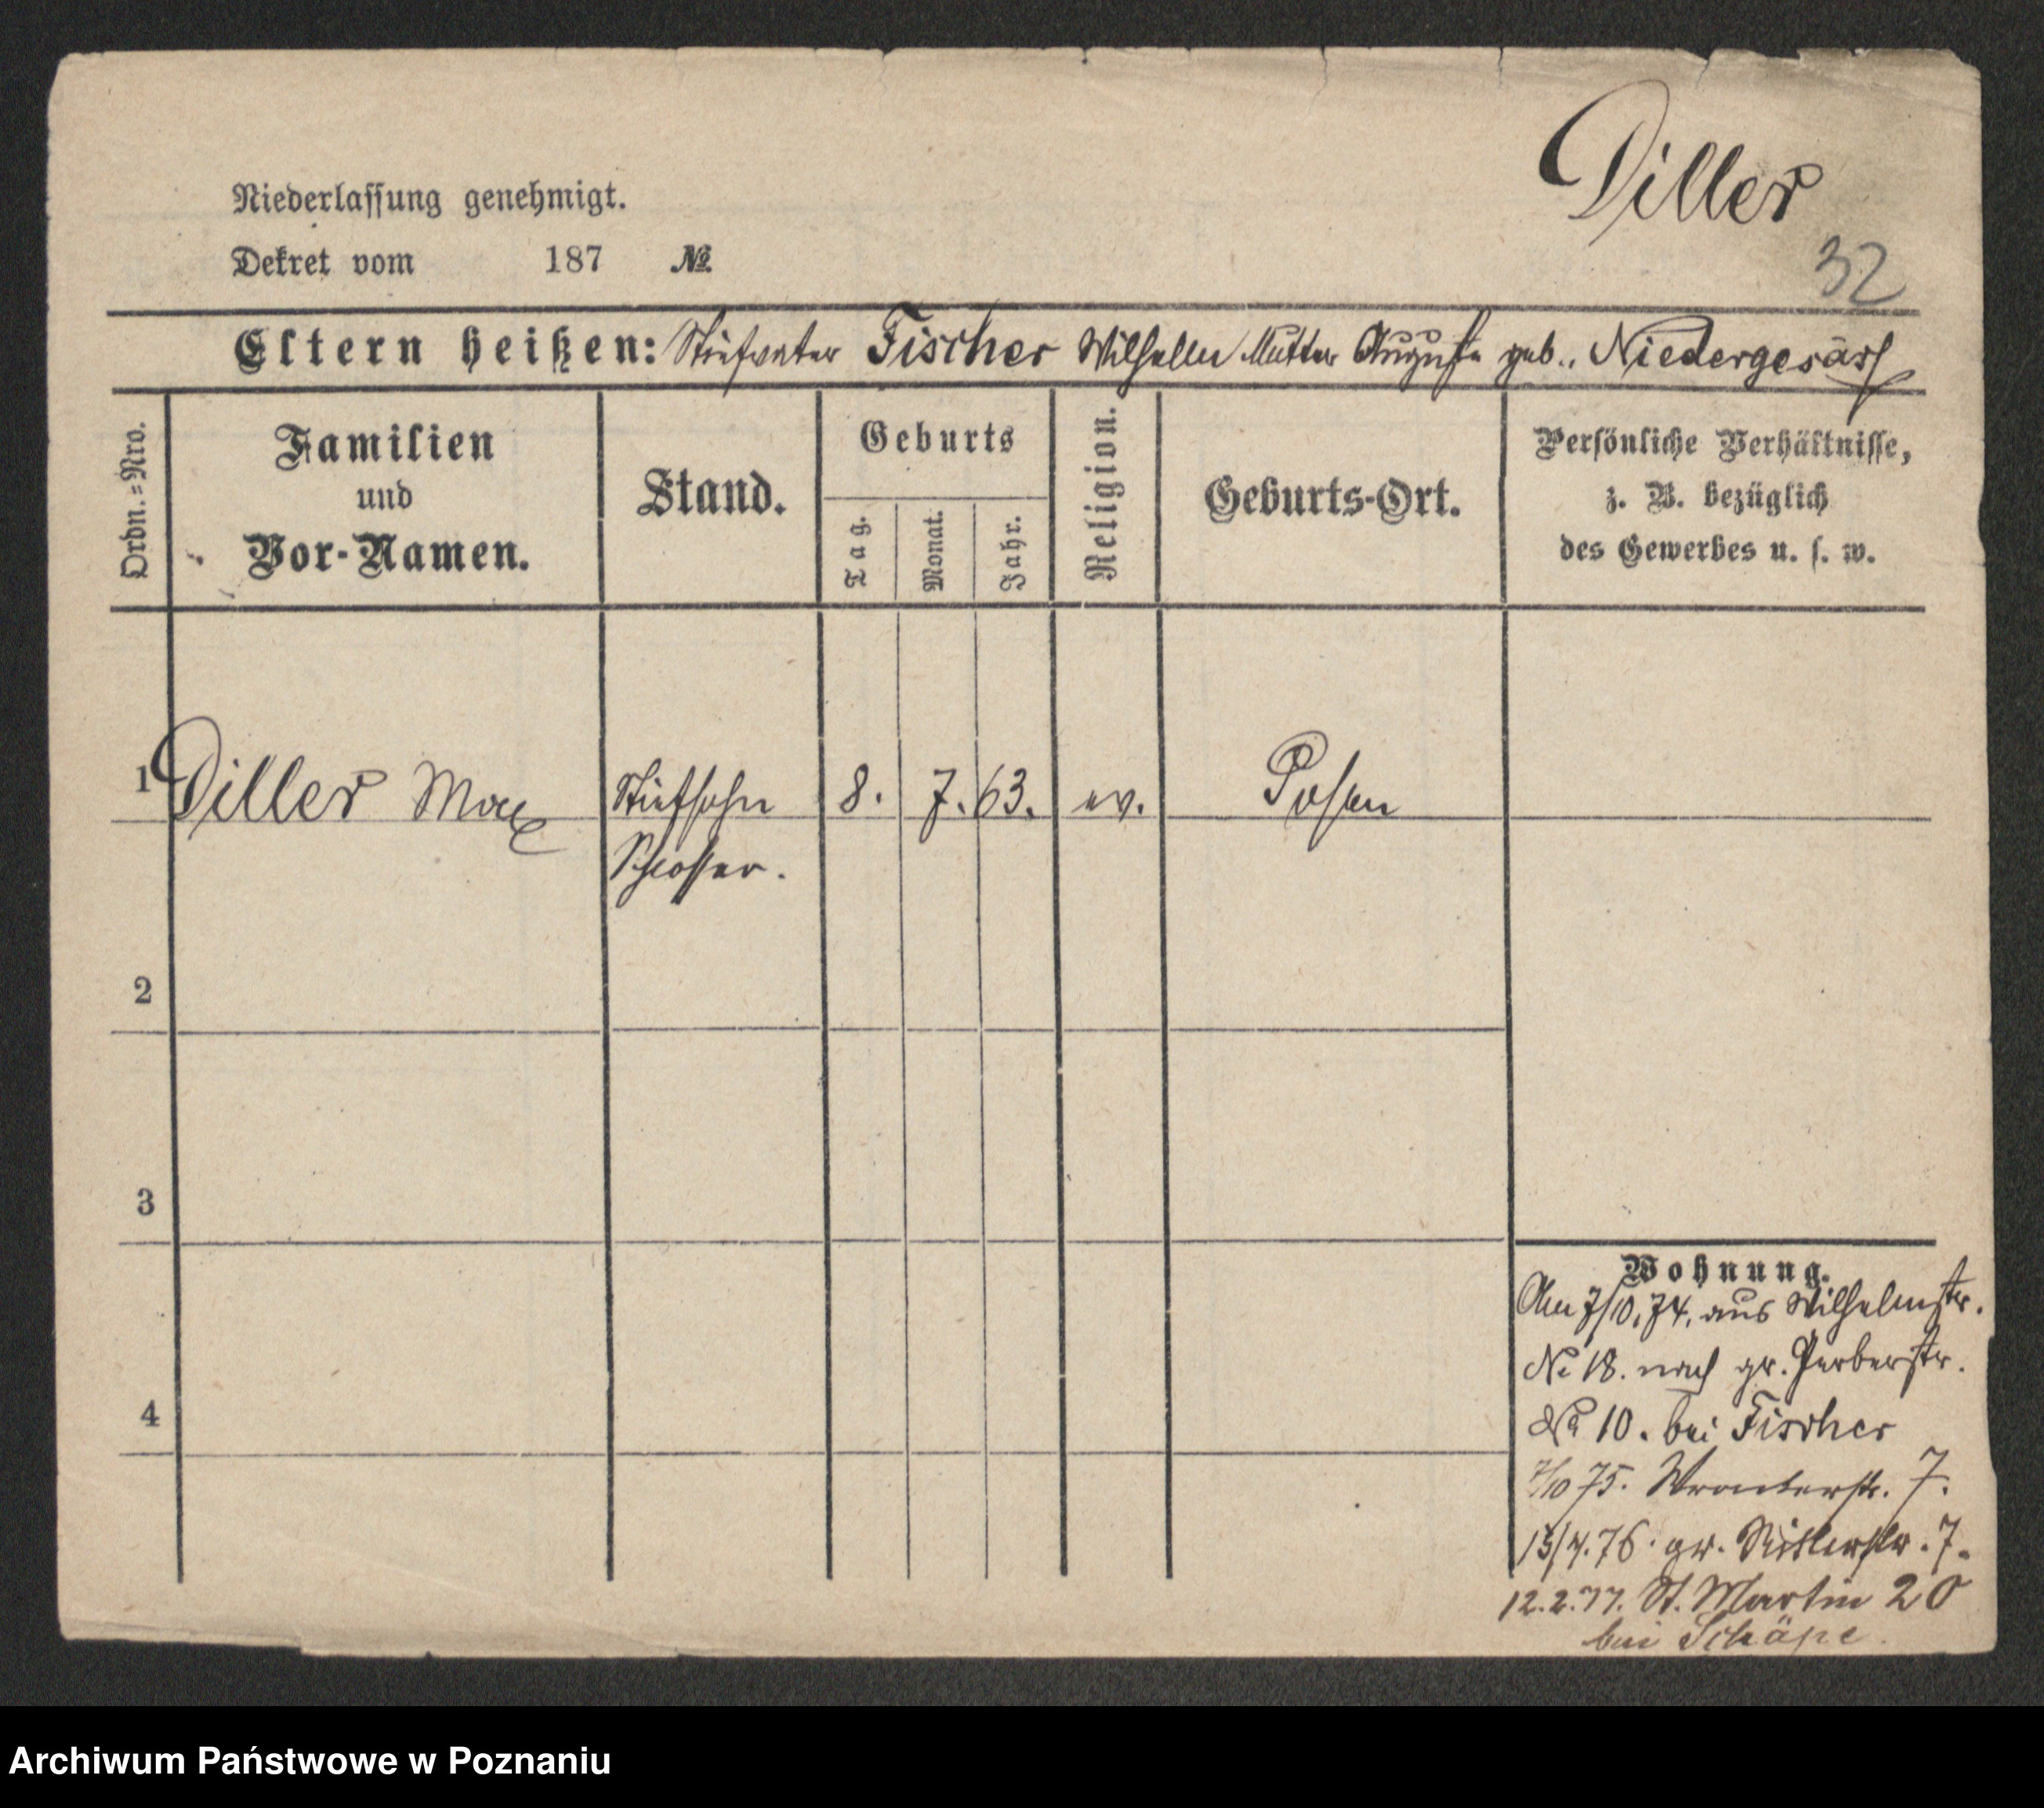 Diller
32
Niederlassung genehmigt.
Dekret vom 187 №
Eltern heißen: Stiefvater Fischer Wilhelm Mutter Auguste geb. Niedergesäss
Ordn.=Nro.
Familien
und
Vor-Namen.
Stand.
Geburts
Tag.
Monat.
Jahr.
Religion.
Geburts-Ort.
Persönliche Verhältnisse,
z. B. bezüglich
des Gewerbes u. s. w.
1 Diller Max Stiefsohn 8. 7. 63. ev. Posen
Schlosser.
2
3
4
Wohnung.
Am 7/10. 74. aus Wilhelmstr.
No 18. nach gr. Gerberstr.
No 10. bei Fischer
7/10 75. Wronkerstr. 7.
15/4. 76. gr. Ritterstr. 7.
12.2.77. St. Martin 20
bei Schäpe.
Archiwum Państwowe w Poznaniu